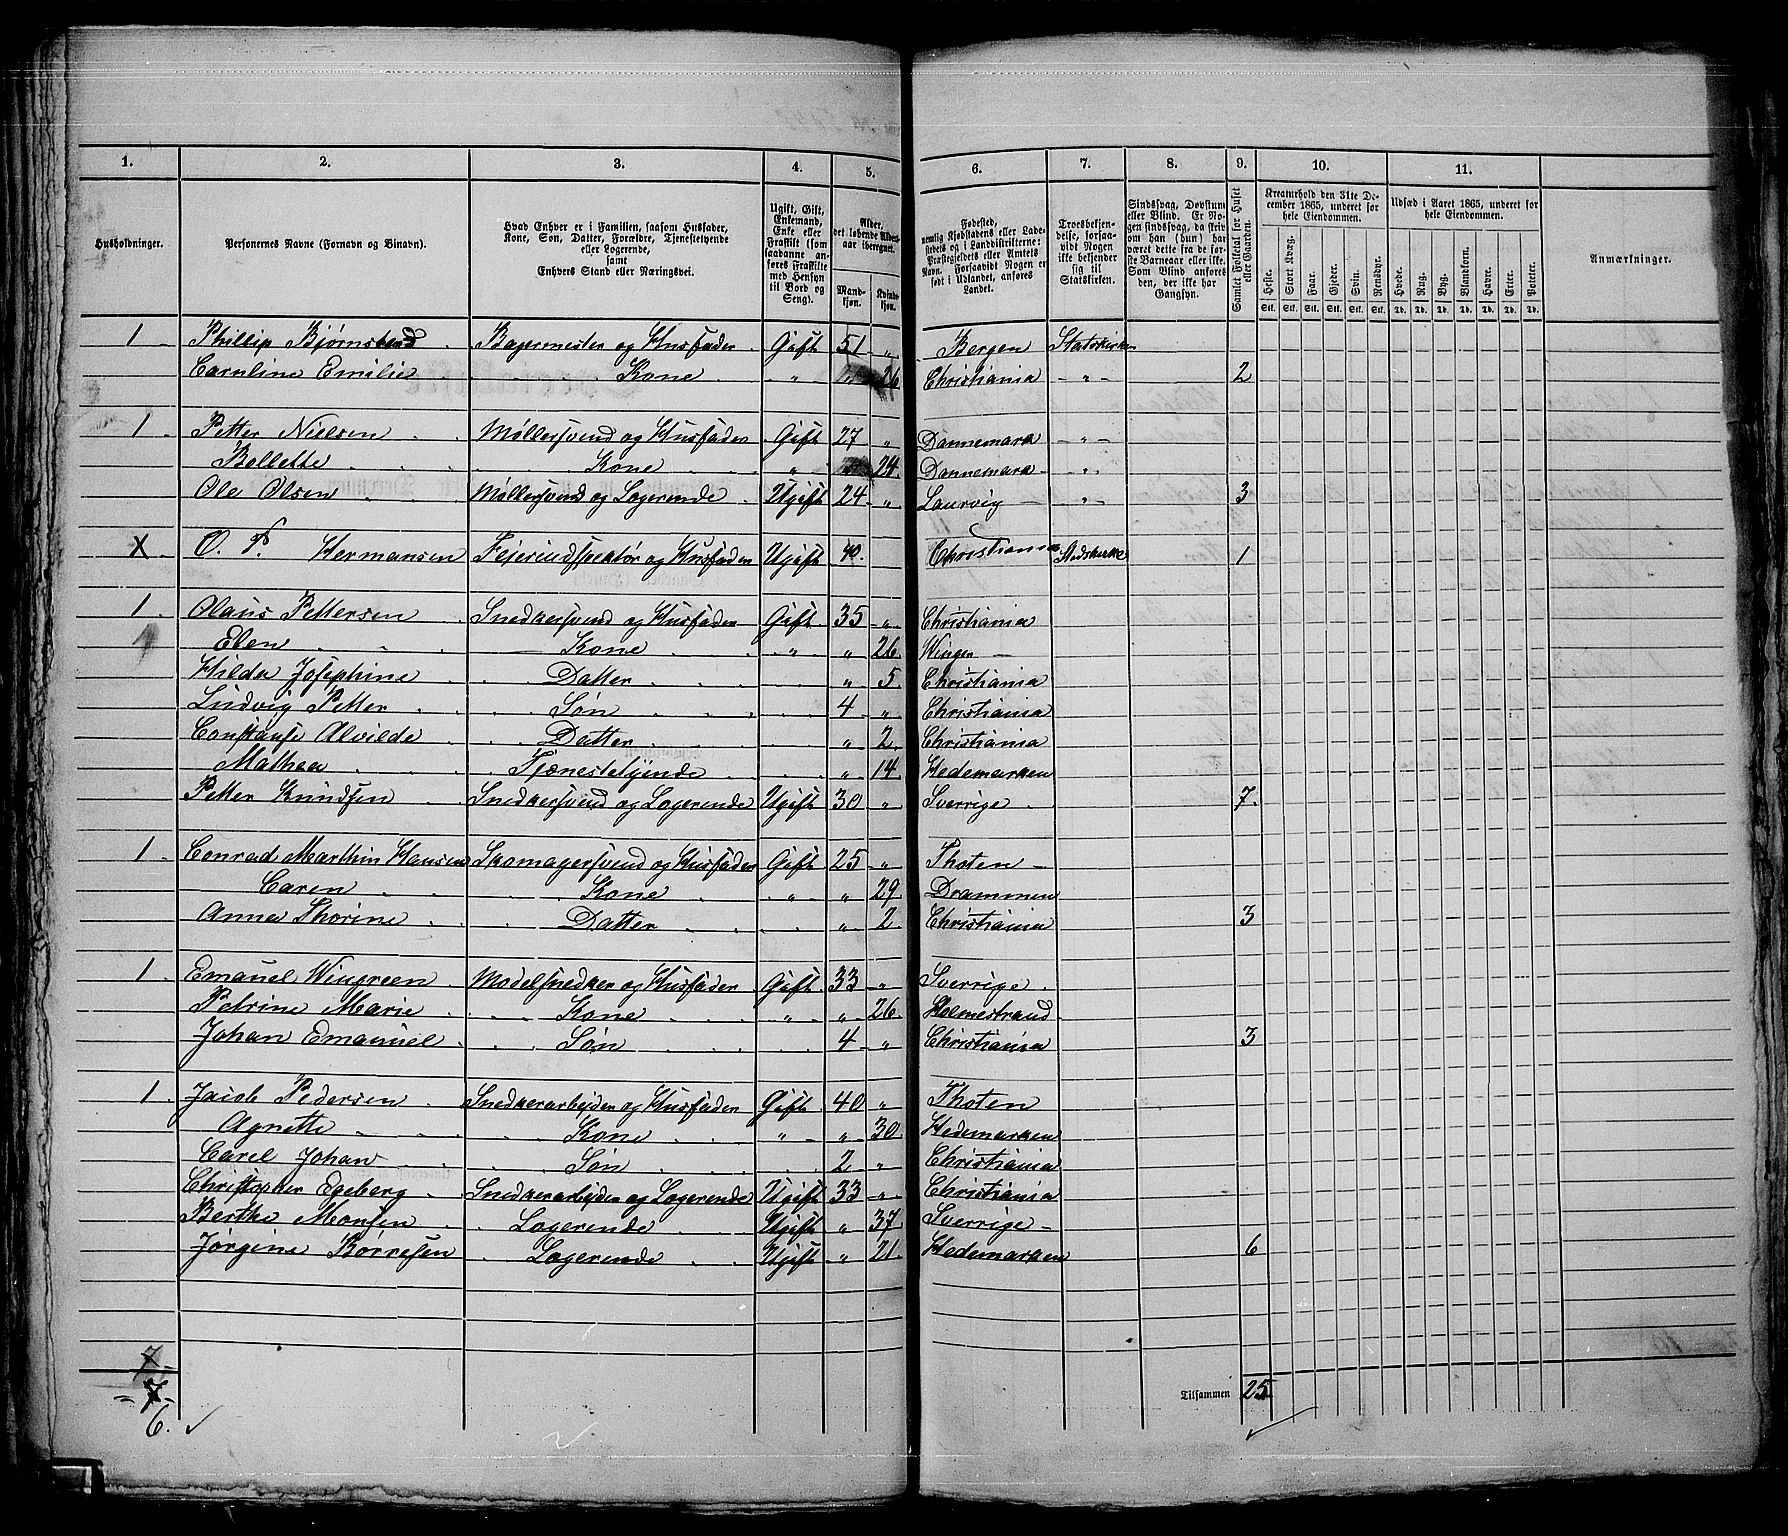 1. 2. 3. 4. 5. 6. 7. 8. 9. 10. 11.
Husholdninger. | Personernes Navne (Fornavn og Binavn). | Hvad Enhver er i Familien, saasom Husfader, Kone, Søn, Datter, Forældre, Tjenestetyende eller Logerende, samt Enhvers Stand eller Næringsvei. | Ugift, Gift, Enkemand, Enke eller Fraskilt (som saadanne anføres Fraskilte med Hensyn til Bord og Seng). | Alder, det løbende Aldersaar iberegnet. Mandkjøn. Kvindekjøn. | Fødested, nemlig Kjøbstadens eller Ladestedets og i Landdistrikterne: Præstegjeldets eller Amtets Navn. Forsaavidt Nogen er født i Udlandet, anføres Landet. | Troesbekjendelse, forsaavidt Nogen ikke bekjender sig til Statskirken. | Sindssvag, Døvstum eller Blind. Er Nogen sindssvag, da skriv om han (hun) har været dette fra de første Barneaar eller ikke. Som Blind anføres den, der ikke har Gangsyn. | Samlet Folketal for Huset eller Gaarden. | Kreaturhold den 31te December 1865, underet for hele Eiendommen. | Udsæd i Aaret 1865, underet for hele Eiendommen. | Anmærkninger.
Heste. Stort Kvæg. Faar. Gjeder. Svin. Rensdyr. Hvede. Rug. Byg. Blandkorn. Havre. Erter. Poteter.
Stk. Stk. Stk. Stk. Stk. Stk. Td. Td. Td. Td. Td. Td. Td.
1 Phillip Bjørnstend Bagermester og Husfader Gift 51 " Bergen Statskirken
Caruline Emilie Kone " " 26 Christiania " 2
1 Petter Nielsen Møllersvend og Husfader Gift 27 " Dannemark "
Bollette Kone " 24 Dannemark "
Ole Olsen Møllersvend og Logerende Ugift 24 " Laurvig " 3
X O. P. Hermansen Fejerindspektør og Husfader Ugift 40. Christiania Statskirke 1
1 Olaus Pettersen Snedkersvend og Husfader Gift 35 " Christiania
Elen Kone " " 26 Winger
Hilda Josephine Datter " 5 Christiania
Ludvig Petter Søn 4 " Christiania
Constanse Alvilde Datter " 2 Christiania
Mathea Tjænestetyende " 14 Hedemarken
Petter Knudsen Snedkersvend og Logerende Ugift 30 " Sverrige 7.
1 Conrad Marthin Hansen Skomagersvend og Husfader Gift 25 " Thoten
Caren Kone " " 29 Drammen
Anna Thorine Datter " 2 Christiania 3
1 Emanuel Wingreen Modelsnedker og Husfader Gift 33 " Sverrige
Petrine Marie Kone " " 26 Holmestrand
Johan Emanuel Søn 4 " Christiania 3
1 Jacob Pedersen Snedkerarbejder og Husfader Gift 40 " Thoten
Agnette Kone " " 30 Hedemarken
Carel Johan Søn 2 " Christiania
Christopher Egeberg Snedkerarbejder og Logerende Ugift 33 " Christiania
Berthe Monsen Logerende Ugift " 37 Sverrige
Jørgine Børresen Logerende Ugift " 21 Hedemarken 6
7
=7= Tilsammen 25
6.